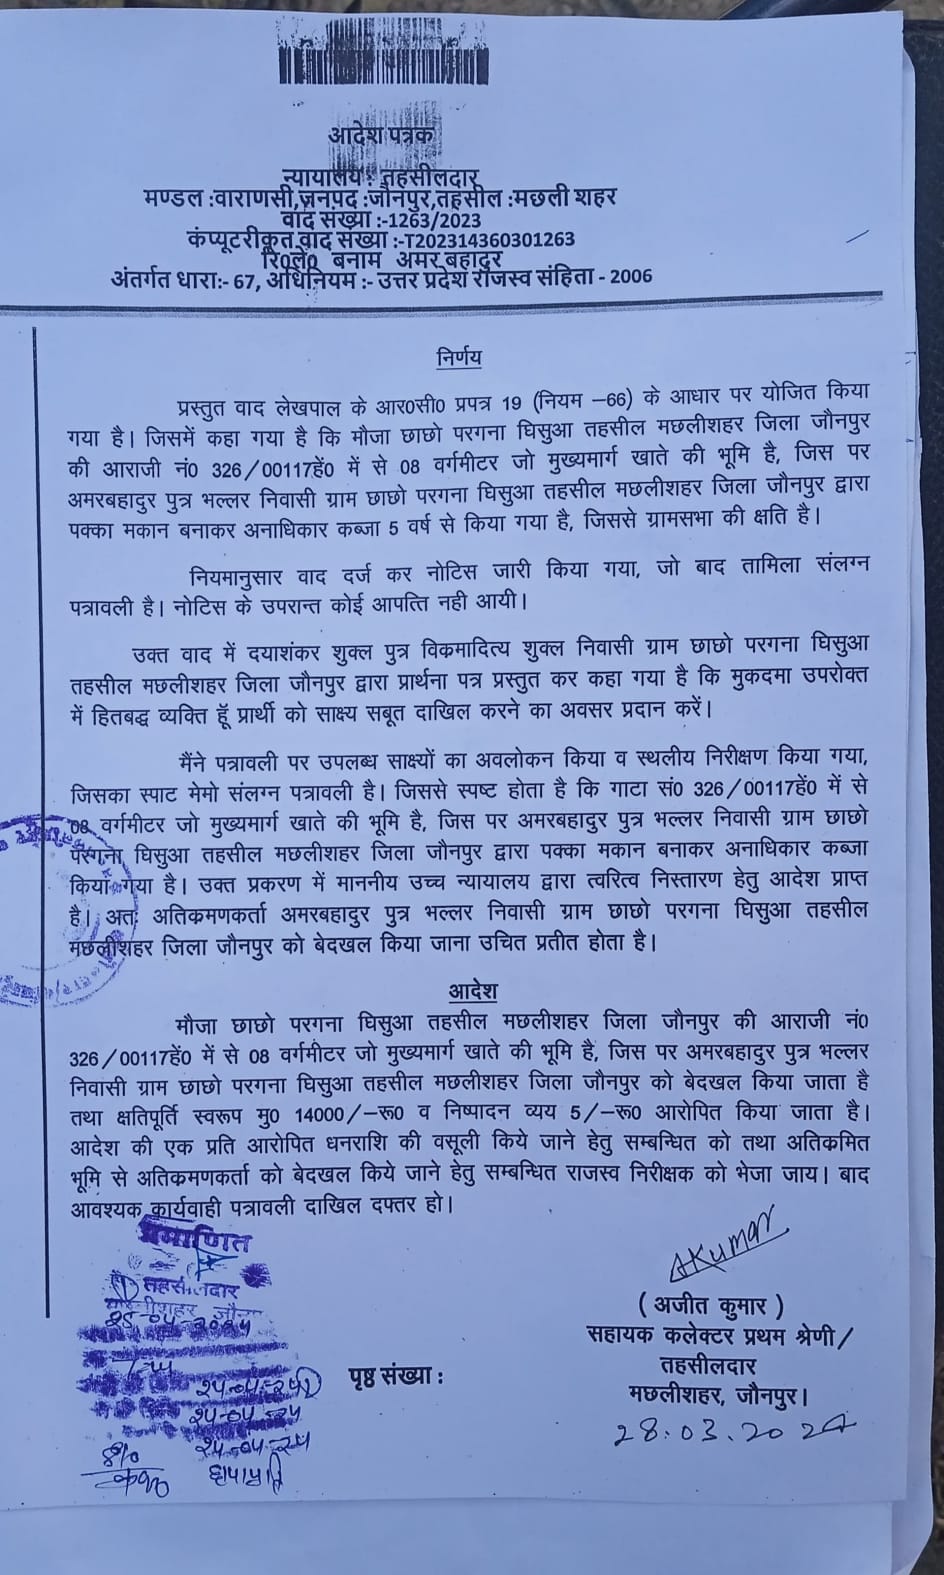 आदेश पत्रक
न्यायालय : तहसीलदार
मण्डल :वाराणसी,जनपद :जौनपुर,तहसील :मछली शहर
वाद संख्या :-1263/2023
कंप्यूटरीकृत वाद संख्या :-T202314360301263
रि0ले0 बनाम अमर बहादुर
अंतर्गत धारा:- 67, अधिनियम :- उत्तर प्रदेश राजस्व संहिता - 2006
निर्णय
प्रस्तुत वाद लेखपाल के आर0सी0 प्रपत्र 19 (नियम –66) के आधार पर योजित किया
गया है। जिसमें कहा गया है कि मौजा छाछो परगना घिसुआ तहसील मछलीशहर जिला जौनपुर
की आराजी नं0 326/00117हें0 में से 08 वर्गमीटर जो मुख्यमार्ग खाते की भूमि है, जिस पर
अमरबहादुर पुत्र भल्लर निवासी ग्राम छाछो परगना घिसुआ तहसील मछलीशहर जिला जौनपुर द्वारा
पक्का मकान बनाकर अनाधिकार कब्जा 5 वर्ष से किया गया है, जिससे ग्रामसभा की क्षति है।
नियमानुसार वाद दर्ज कर नोटिस जारी किया गया, जो बाद तामिला संलग्न
पत्रावली है। नोटिस के उपरान्त कोई आपत्ति नही आयी।
उक्त वाद में दयाशंकर शुक्ल पुत्र विकमादित्य शुक्ल निवासी ग्राम छाछो परगना घिसुआ
तहसील मछलीशहर जिला जौनपुर द्वारा प्रार्थना पत्र प्रस्तुत कर कहा गया है कि मुकदमा उपरोक्त
में हितबद्ध व्यक्ति हूँ प्रार्थी को साक्ष्य सबूत दाखिल करने का अवसर प्रदान करें।
मैंने पत्रावली पर उपलब्ध साक्ष्यों का अवलोकन किया व स्थलीय निरीक्षण किया गया,
जिसका स्पाट मेमो संलग्न पत्रावली है। जिससे स्पष्ट होता है कि गाटा सं0 326/00117हें0 में से
08 वर्गमीटर जो मुख्यमार्ग खाते की भूमि है, जिस पर अमरबहादुर पुत्र भल्लर निवासी ग्राम छाछो
परगना घिसुआ तहसील मछलीशहर जिला जौनपुर द्वारा पक्का मकान बनाकर अनाधिकार कब्जा
किया गया है। उक्त प्रकरण में माननीय उच्च न्यायालय द्वारा त्वरित्व निस्तारण हेतु आदेश प्राप्त
है। अतः अतिकमणकर्ता अमरबहादुर पुत्र भल्लर निवासी ग्राम छाछो परगना घिसुआ तहसील
मछलीशहर जिला जौनपुर को बेदखल किया जाना उचित प्रतीत होता है।
आदेश
मौजा छाछो परगना घिसुआ तहसील मछलीशहर जिला जौनपुर की आराजी नं0
326/00117हें0 में से 08 वर्गमीटर जो मुख्यमार्ग खाते की भूमि है, जिस पर अमरबहादुर पुत्र भल्लर
निवासी ग्राम छाछो परगना घिसुआ तहसील मछलीशहर जिला जौनपुर को बेदखल किया जाता है
तथा क्षतिपूर्ति स्वरूप मु0 14000/–रू0 व निष्पादन व्यय 5/–रू0 आरोपित किया जाता है।
आदेश की एक प्रति आरोपित धनराशि की वसूली किये जाने हेतु सम्बन्धित को तथा अतिकमित
भूमि से अतिकमणकर्ता को बेदखल किये जाने हेतु सम्बन्धित राजस्व निरीक्षक को भेजा जाय। बाद
आवश्यक कार्यवाही पत्रावली दाखिल दफ्तर हो।
प्रमाणित
तहसीलदार
AKumar
( अजीत कुमार )
सहायक कलेक्टर प्रथम श्रेणी/
तहसीलदार
मछलीशहर, जौनपुर।
28.03.2024
पृष्ठ संख्या :